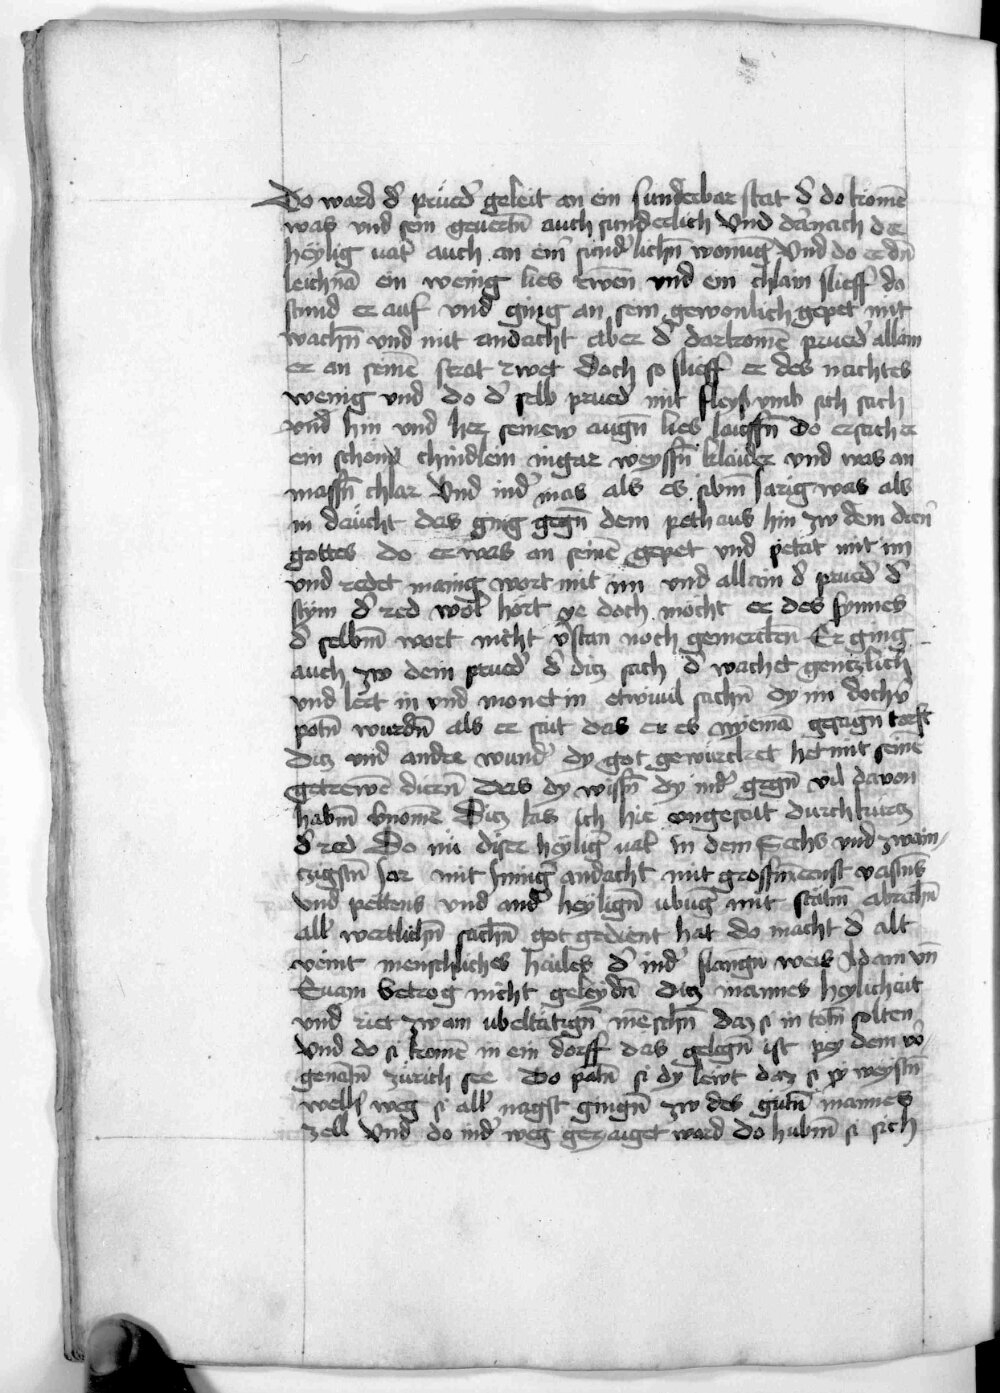 Do ward d̕ průed̕ geleit an ein sunderbar stat d̕ do komē
was vnd sein geuertn̄ auch sunderlich Vnd darnach der
heylig uat̕ auch an eim̄ sund̕lichn̄ wonūg Vnd do er dn̄
leichnā ein wenig lies rwen̄ vnd ein chlain slieff do
stund er auf vnd ging an sein gewonlich gepet mit
wachn̄ vnd mit andacht aber d̕ darkomē prued̕ allain
er an seinē strat rwet Doch so slieff er des nachtes
wenig vnd do d̕ selb prued̕ mit fleyß vmb sich sach
vnd hin vnd her seinew augn̄ lies lauffn̄ Do ersach er
ein schons chindlein in gar weyssn̄ klaider vnd was an
massn̄ chlar Vnd ind̕ mas als es sibm̄ Jarig was als
in daucht das ging gegn̄ dem peth aus hin zw dem dien̄
gottes do er was an seinē gepet vnd petat mit im
vnd redet manig wort mit im vnd allain d̕ prued̕ d̕
stym d̕ red wol hort ye doch mocht er des synnes
d̕ selbm̄ wort nicht v̕stan noch gemerckn̄ Er ging
auch zw dem prued̕ d̕ ditz sach d̕ wachet gentzlich
vnd lert in vnd monet in etwiuil sachn̄ dy im doch v̕
potn̄ wurdn̄ als er sait das er es nyemā gesagn̄ torst
Ditz vnd andre wund̕ dy got gewürcket het mit seinē
getrewē dienn̄ Das dy wissn̄ dy ind̕ gegn̄ vil davon
habm̄ v̕nomē Ditz las ich hie vngesait durch kurtz
d̕ red Do nu diser heylig̕ uat̕ in dem Sechs vnd zwain⸗
tzigstn̄ Jar mit ynnig̕ andacht mit grossm̄ ernst vastns
vnd pettens vnd and̕ heylign̄ ubūg mit stätm̄ abrechn̄
all̕ wertlichn̄ sachn̄ got gedient hat do macht d̕ alt
veint menschliches hailes d̕ ind̕ slangn̄ weis Adam vn̄
Euam betrog nicht geleydn̄ ditz mannes heylichait
vnd riet zwain ubeltätign̄ mēschn̄ daz si in totn̄ solten
Vnd do si komē in ein dorff das gelegn̄ ist pey dem vo⸗
genātn̄ zürich see Do patn̄ si dy lewt daz si sy weystn̄
welhn̄ weg si all̕ nagst gingn̄ zw des gutn̄ mannes
zell Vnd do ind̕ weg gezaiget ward do hubm̄ si sich